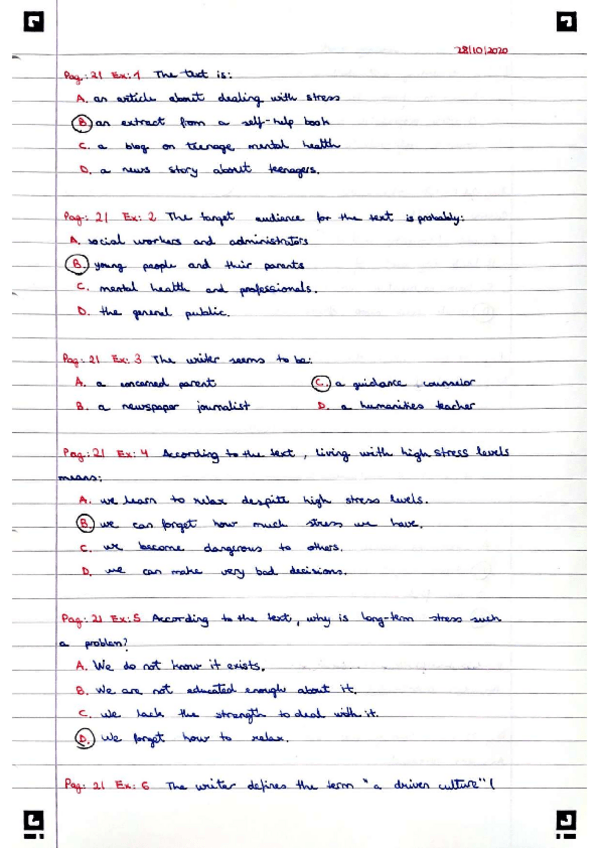 28/10/2020
Pag.: 21 Ex: 1 The text is:
A. an article about dealing with stress
B. an extract from a self-help book
C. a blog on teenage mental health
D. a news story about teenagers.
Pag: 21 Ex: 2 The target audience for the text is probably:
A. social workers and administrators
B. young people and their parents
C. mental health and professionals.
D. the general public.
Pag: 21 Ex: 3 The writer seems to be:
A. a concerned parent C. a guidance counselor
B. a newspaper journalist D. a humanities teacher
Pag: 21 Ex: 4 According to the text, living with high stress levels
means:
A. we learn to relax despite high stress levels.
B. we can forget how much stress we have.
C. we become dangerous to others.
D. we can make very bad decisions.
Pag: 21 Ex: 5 According to the text, why is long-term stress such
a problem?
A. We do not know it exists.
B. We are not educated enough about it.
C. we lack the strength to deal with it.
D. We forget how to relax.
Pag: 21 Ex: 6 The writer defines the term "a driven culture" (